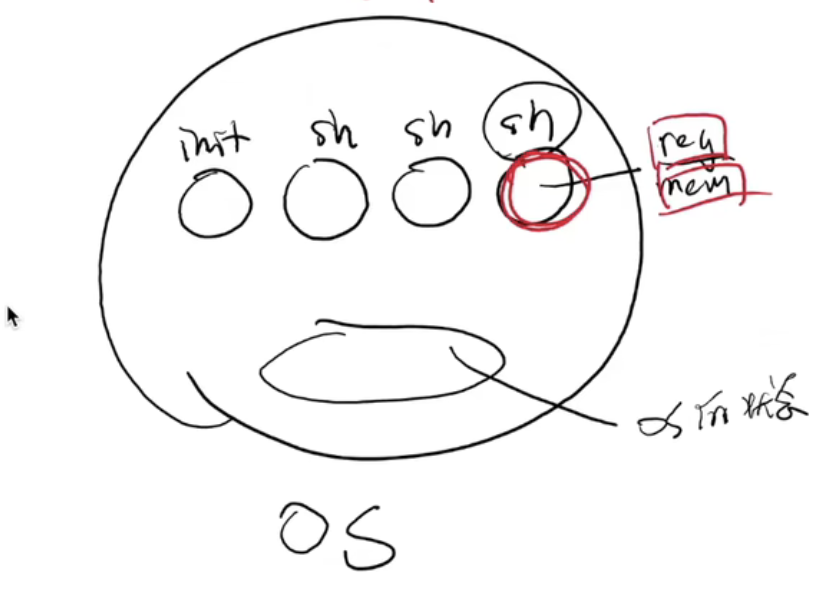 init sh sh sh
reg
mem
OS的状态
OS